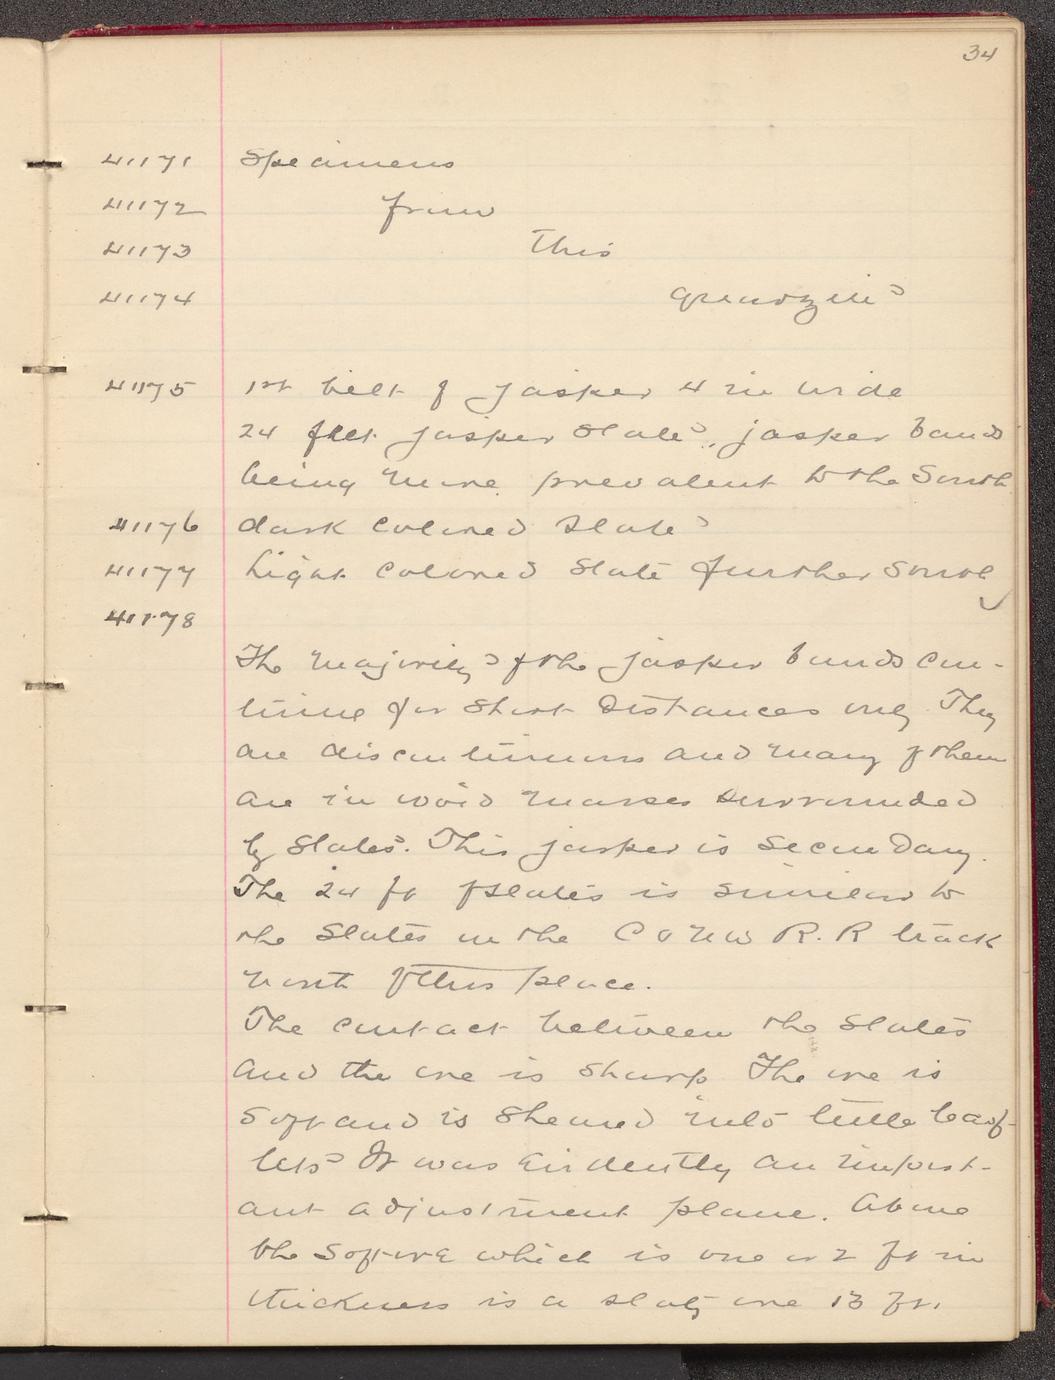 34
41171 Specimens
41172 from
41173 This
41174 quartzite
41175 1st belt of jasper 4 in wide
24 feet jasper slate, jasper bands
being more prevalent to the South
41176 dark colored slate
41177 Light colored slate further South
41178
The majority of the jasper bands con-
tinue for short distances only. They
are discontinuous and many of them
are in ovoid masses surrounded
by slates. This jasper is secondary.
The 24 ft of slates is similar to
the slates on the C & NW R.R track
north of this place.
The contact between the slates
and the ore is sharp The ore is
soft and is sheared into little leaf-
lets It was evidently an import-
ant adjustment plane. Above
the soft ore which is one or 2 ft in
thickness is a slaty ore 13 ft.